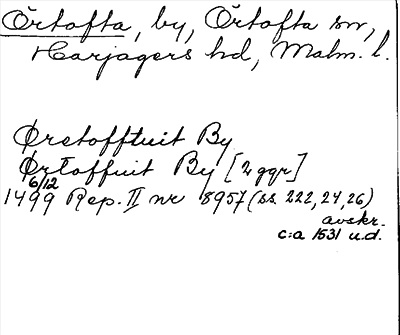 Örtofta, by, Örtofta sn,
Harjagers hd, Malm. l.
Øretofftuit By
Ørtoffuit By [2 ggr]
6/12
1499 Rep. II nr 8957 (ss. 222, 24, 26)
avskr.
c:a 1531 u.d.